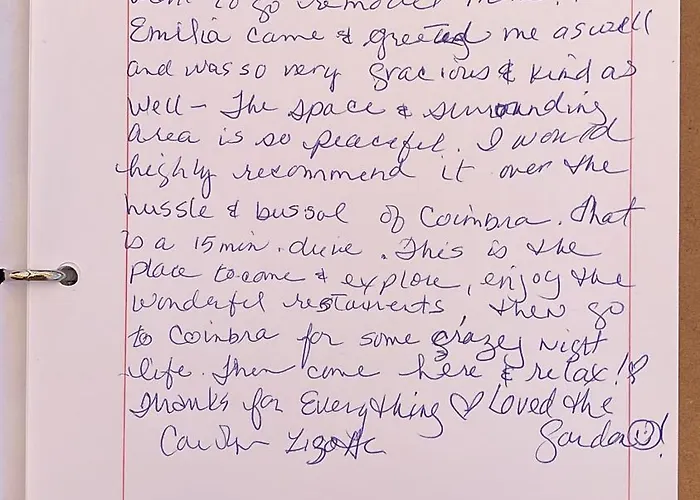 to go
Emilia came & greeted me aswell
and was so very gracious & kind as
well - The space & surrounding
area is so peaceful. I would
highly recommend it over the
hussle & bussal of Coimbra. That
is a 15 min. drive. This is the
place to come & explore, enjoy the
wonderful restaurents, then go
to Coimbra for some crazey night
life. Then come here & relax!♡
Thanks for Everything ♡ Loved the
Garden☺!